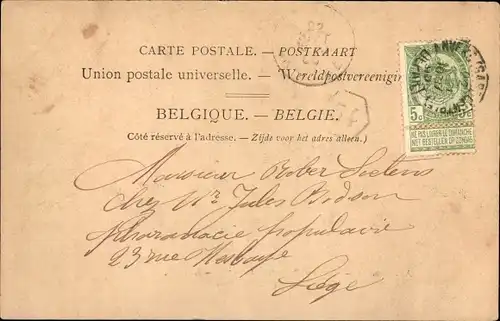 CARTE POSTALE. — POSTKAART
Union postale universelle. — Wereldpostvereeniging
BELGIQUE. — BELGIE.
Côté réservé à l'adresse. — Zijde voor het adres alleen.)
5c 5c
NE PAS LIVRER LE DIMANCHE
NIET BESTELLEN OP ZONDAG
Monsieur Rober
chez Mr Jules Bodson
pharmacie populaire
23 rue Hesbaye
Liége